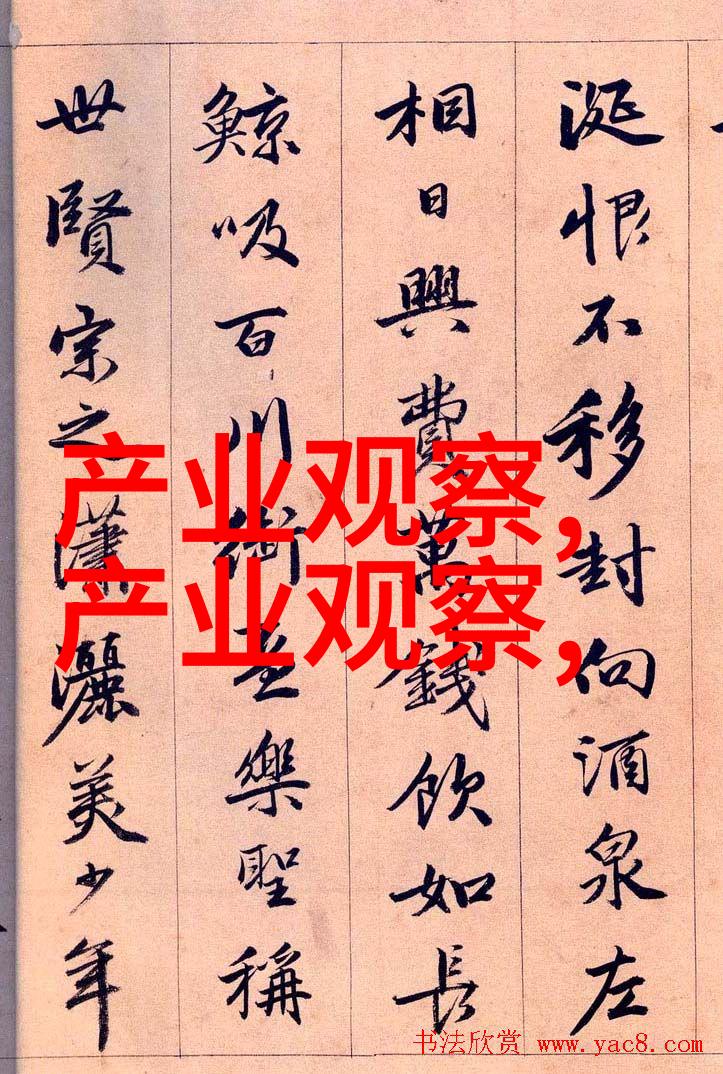 涎恨不移封向酒泉左
相日興費萬錢飲如長
鯨吸百川銜盃樂聖稱
世賢宗之瀟灑美少年
产业观察,
产业观察,
书法欣赏 www.yac8.com